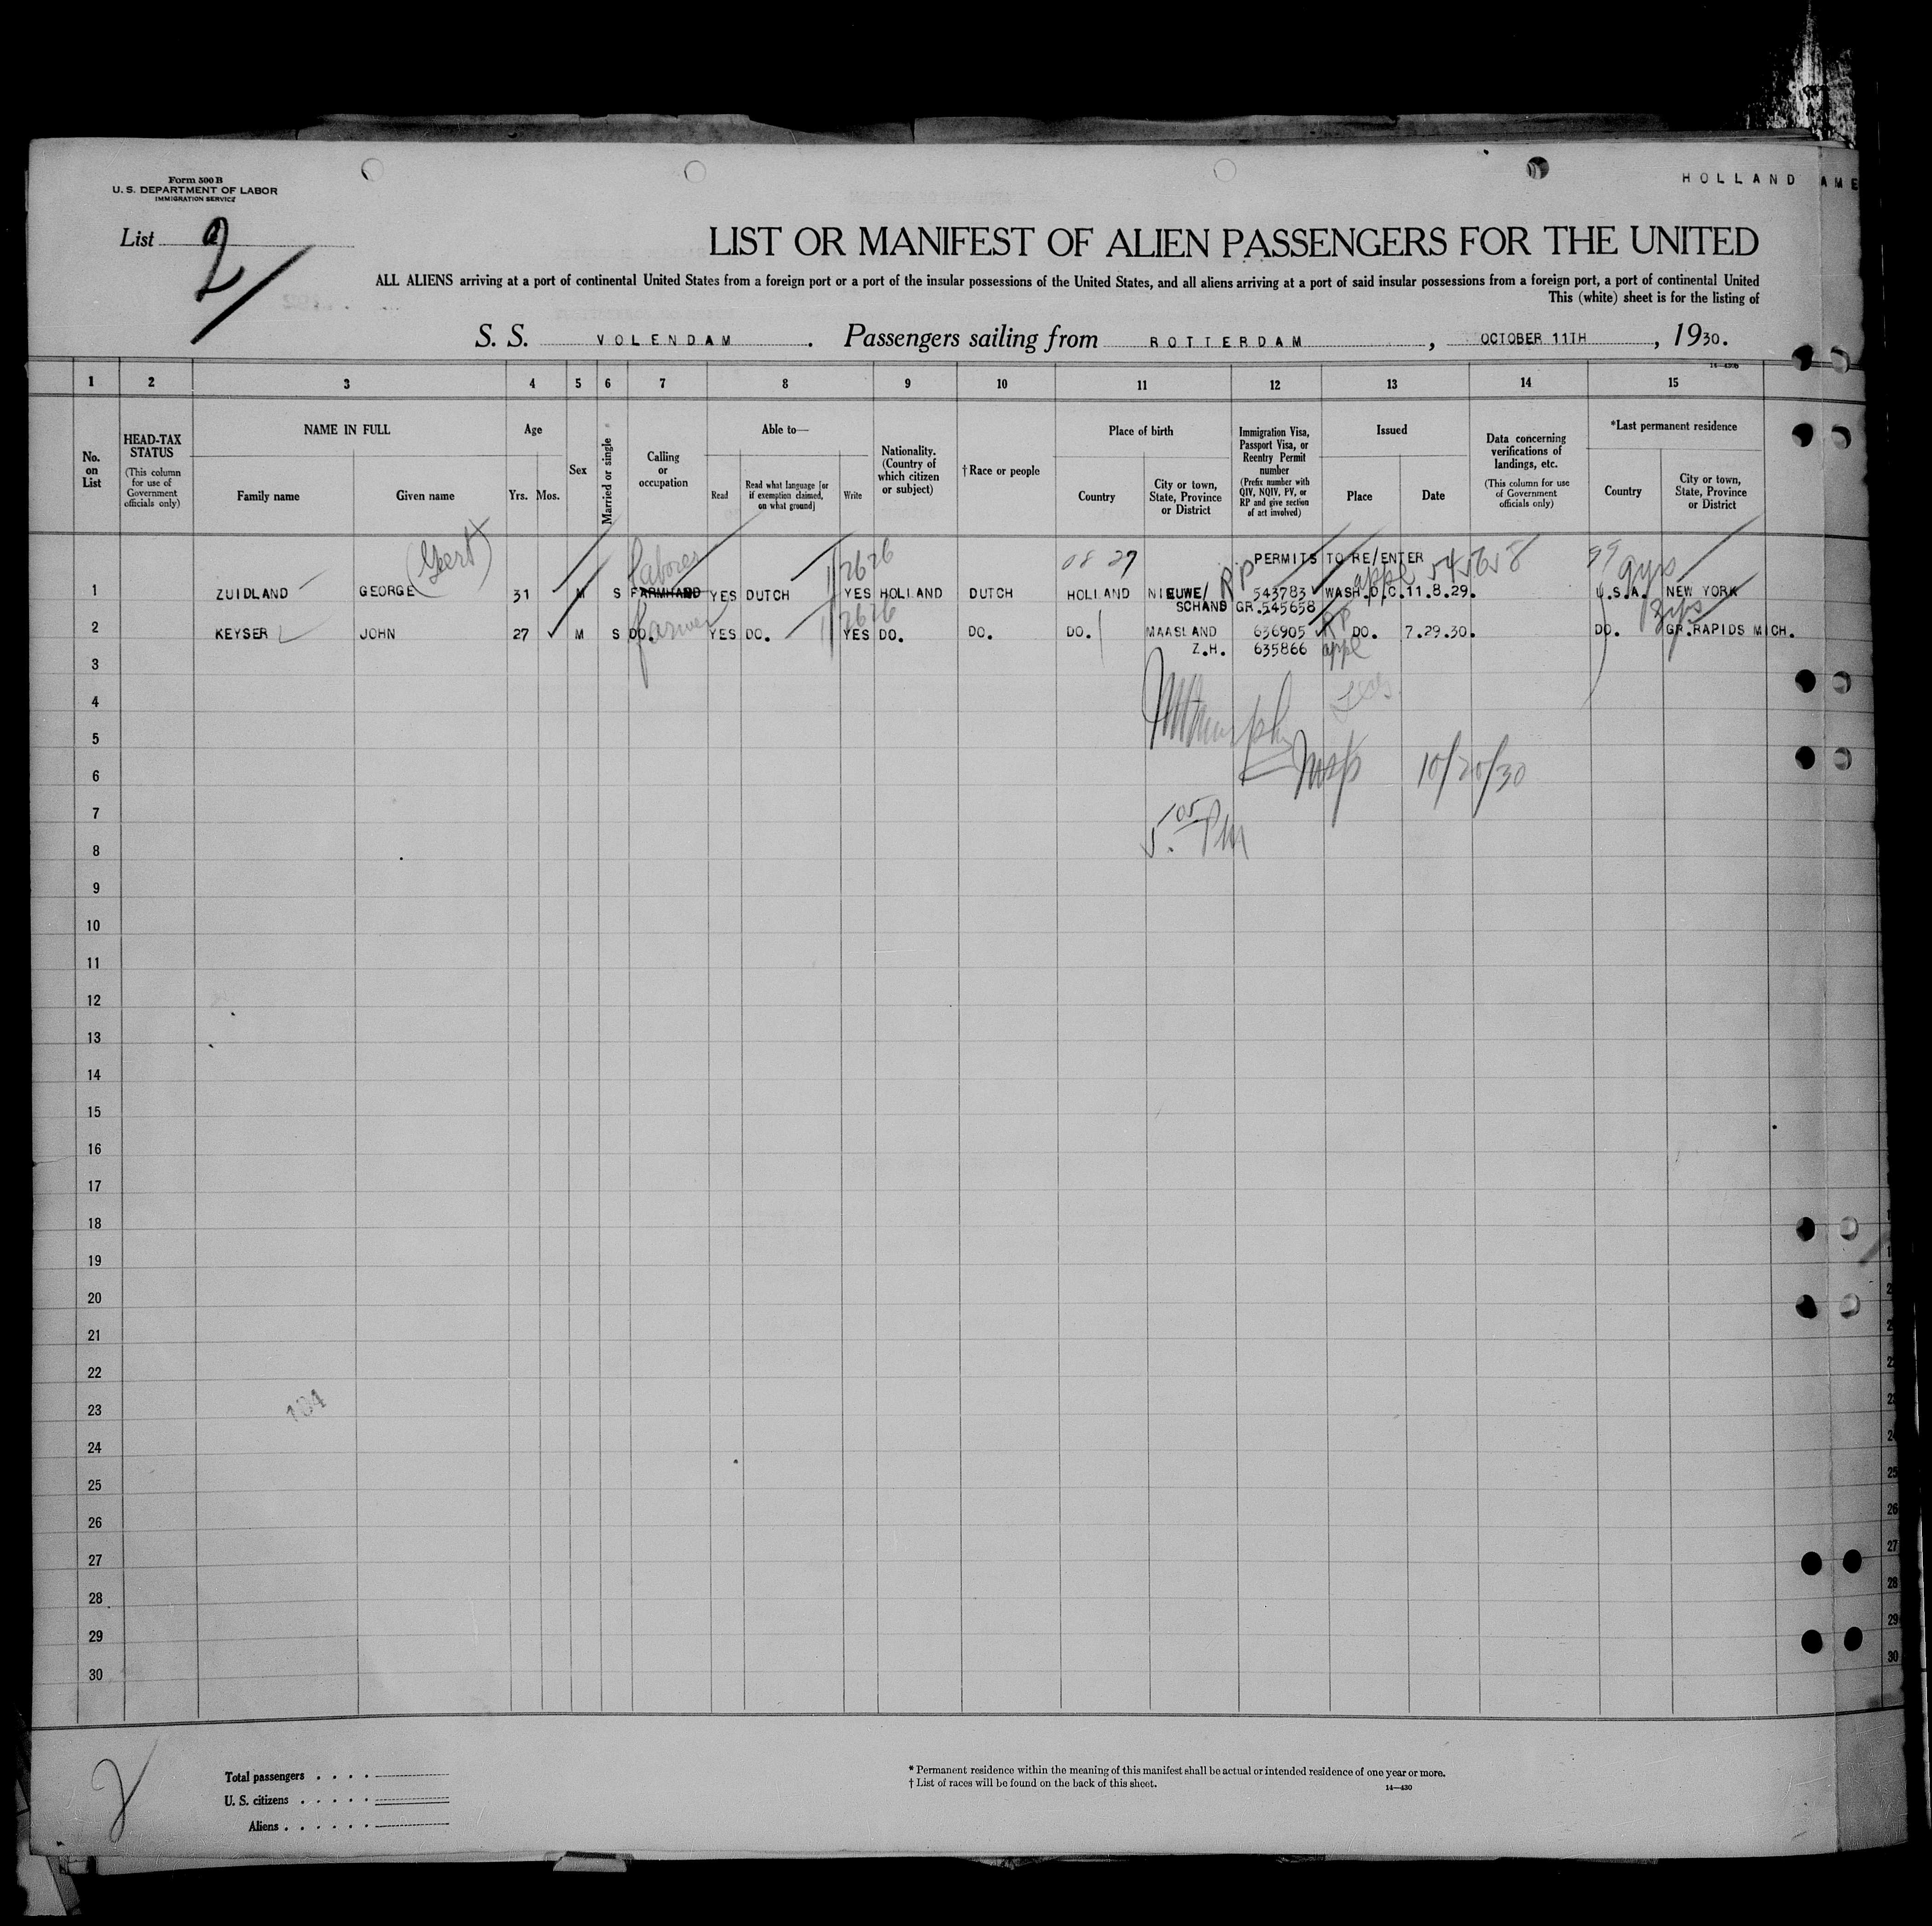 Form 500 B
U. S. DEPARTMENT OF LABOR
IMMIGRATION SERVICE
HOLLAND AME
List 2
LIST OR MANIFEST OF ALIEN PASSENGERS FOR THE UNITED
ALL ALIENS arriving at a port of continental United States from a foreign port or a port of the insular possessions of the United States, and all aliens arriving at a port of said insular possessions from a foreign port, a port of continental United
This (white) sheet is for the listing of
S. S. VOLENDAM. Passengers sailing from ROTTERDAM, OCTOBER 11TH, 1930.
1 2 3 4 5 6 7 8 9 10 11 12 13 14 15
No. on List
HEAD-TAX STATUS
(This column for use of Government officials only)
NAME IN FULL
Family name Given name
Age
Yrs. Mos.
Sex
Married or single
Calling or occupation
Able to—
Read
Read what language [or if exemption claimed, on what ground]
Write
Nationality. (Country of which citizen or subject)
†Race or people
Place of birth
Country
City or town, State, Province or District
Immigration Visa, Passport Visa, or Reentry Permit number
(Prefix number with QIV, NQIV, PV, or RP and give section of act involved)
Issued
Place Date
Data concerning verifications of landings, etc.
(This column for use of Government officials only)
*Last permanent residence
Country
City or town, State, Province or District
(Geert) laborer 2626 08 29 PERMITS TO RE/ENTER 545658 9yrs
1 ZUIDLAND GEORGE 31 M S FARMHAND YES DUTCH YES HOLLAND DUTCH HOLLAND NIEUWE/ RP 543783 WASH.D.C. 11.8.29. U.S.A. NEW YORK
appl
farmer 2626 SCHANS GR. 545658
2 KEYSER JOHN 27 M S DO. YES DO. YES DO. DO. DO. MAASLAND 636905 RP DO. 7.29.30. DO. GR.RAPIDS MICH.
Z.H. 635866 appl
3
4
5
Insp 10/20/30
6
7
5.05 PM
8
9
10
11
12
13
14
15
16
17
18
19
20
21
22
23
104
24
25
26
27
28
29
30
2
Total passengers
U. S. citizens
Aliens
* Permanent residence within the meaning of this manifest shall be actual or intended residence of one year or more.
† List of races will be found on the back of this sheet.
14—430